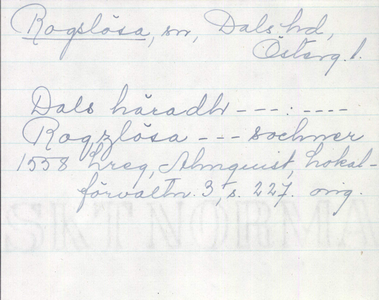 Rogslösa, sn, Dals hd,
Östsrg. l.
Dals häradh ---:----
Rogzlösa --- sochner
1558 Lreg, Almquist, Lokal-
förvaltn. 3, s. 227. orig.